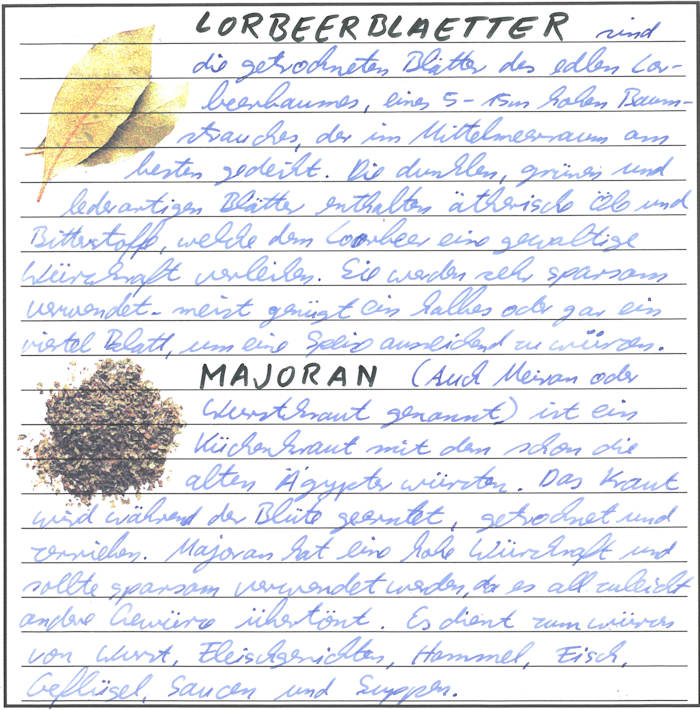 LORBEERBLAETTER sind
die getrockneten Blätter des edlen Lor-
beerbaumes, eines 5-15m hohen Baum-
strauches, der im Mittelmeerraum am
besten gedeiht. Die dunklen, grünen und
lederartigen Blätter enthalten ätherische Öle und
Bitterstoffe, welche dem Loorbeer eine gewaltige
Würzkraft verleihen. Sie werden sehr sparsam
verwendet - meist genügt ein halbes oder gar ein
viertel Blatt, um eine Speise ausreichend zu würzen.
MAJORAN (Auch Meiran oder
Wurstkraut genannt) ist ein
Küchenkraut mit dem schon die
alten Ägypter würzten. Das Kraut
wird während der Blüte geerntet, getrocknet und
zerrieben. Majoran hat eine hohe Würzkraft und
sollte sparsam verwendet werden, da es all zuleicht
andere Gewürze übertönt. Es dient zum würzen
von Wurst, Fleischgerichten, Hammel, Fisch,
Geflügel, Saucen und Suppen.